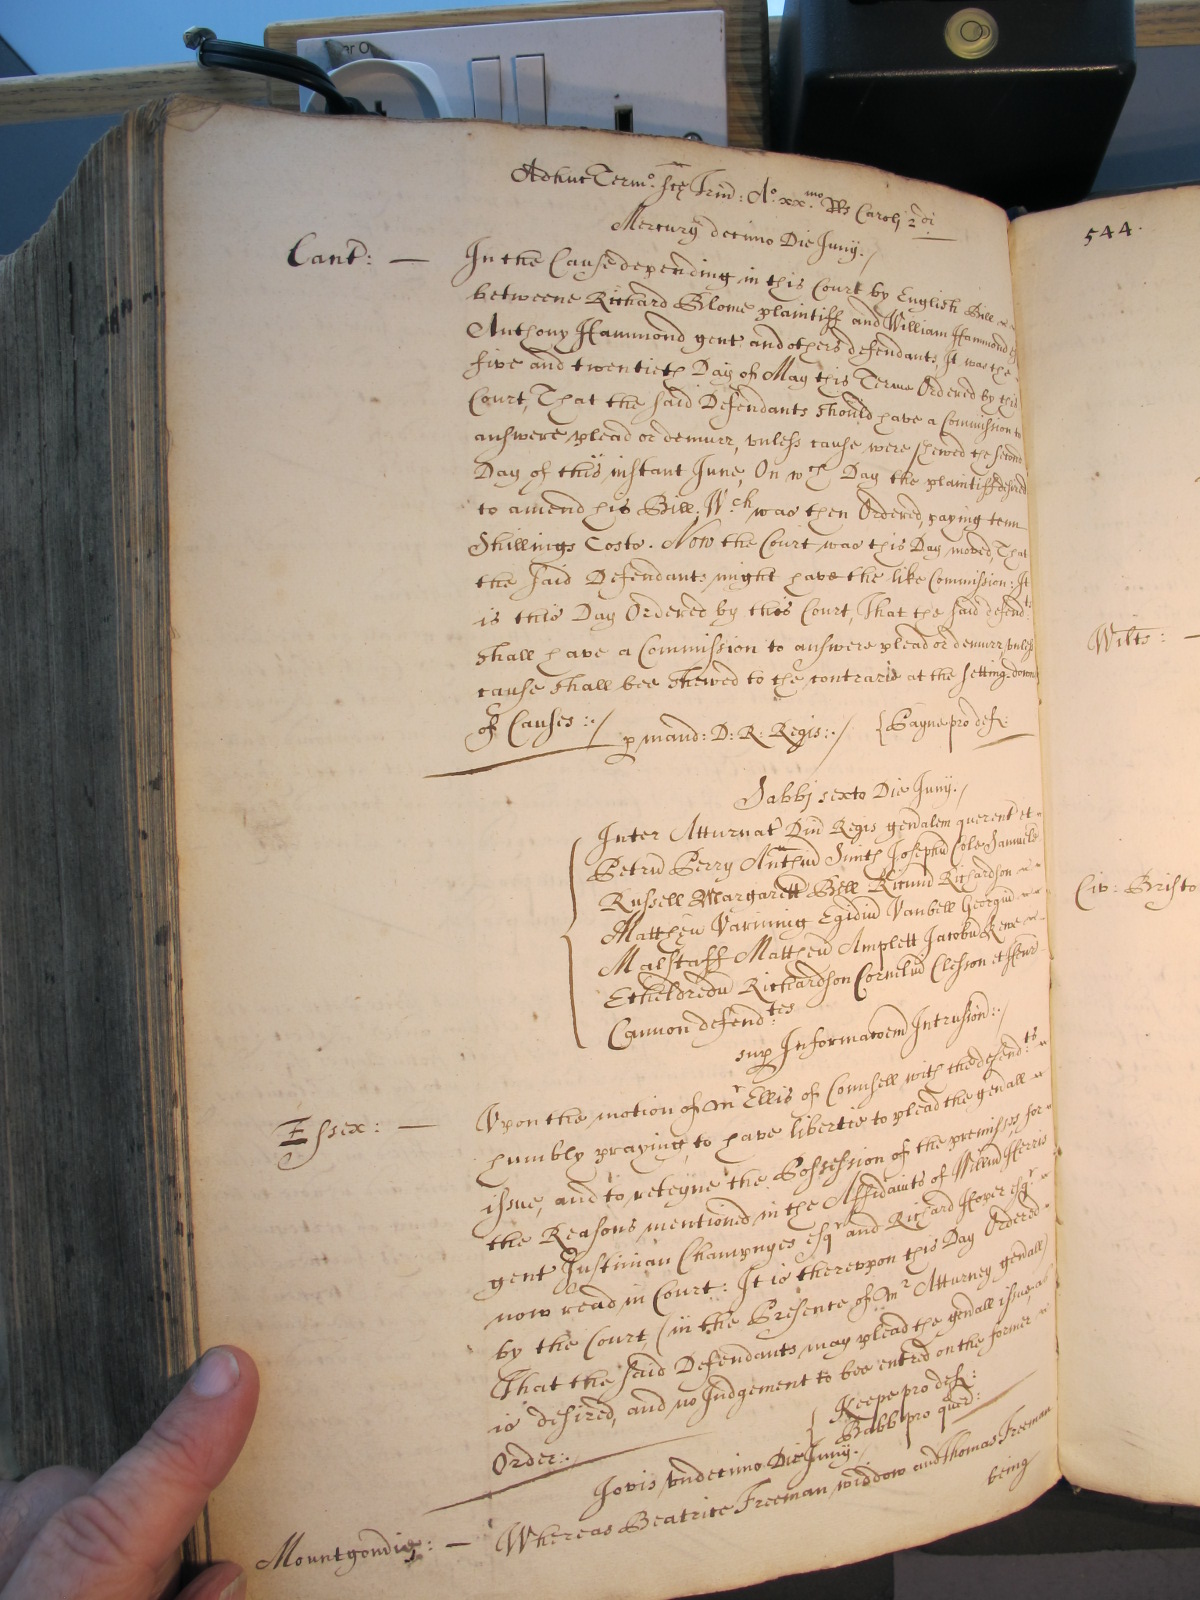 Adhuc Termo: Scē Trin: Ao. xxmo. Rs Carolj 2di
Mercurij decimo Die Junij:/
Cant: — In the Cause depending in this Court by English Bill
betweene Richard Blome plaintiff and William Hammond
Anthony Hammond gent and others defendants, It was the
five and twentieth Day of May this Terme Ordered by this
Court, That the said Defendants should have a Comission to
answere plead or demurr, vnless cause were shewed the second
Day of this instant June, On wch Day the plaintiff desired
to amend his Bill, Wch was then Ordered, paying tenn
Shillings Costs. Now the Court was this Day moved, That
the said Defendants might have the like Commission: It
is this Day Ordered by this Court, That the said defendts
shall have a Commission to answere plead or demurr, vnless
cause shall bee shewed to the contrarie at the setting downe
of Causes:./ p mand: D: R: Regis:./ {Payne pro def:
Sabbj sexto Die Junij./
Inter Atturnat Dni Regis genalem querent et
Petrū Perry Smith Josephū Cole Samuele
Russell Margarett Bell Ricum Richardson
Mattheū Vanning Egidiū Vanbell Georgiū
Malstaff Mattheū Amplett Jacobū Kewe
Etheldredū Richardson Corneliū Clesson et
Cannon defendtes
sup Informacoem Intrusion:./
Essex: — Vpon the motion of Mr Ellis of Counsell with the defendts
humbly praying to have libertie to plead the genall
issue, and to reteyne the Possession of the premisses for
the Reasons mentioned in the Affidavits of Willm Harris
gent Justinian Champnyes esqr and Richard Hover esqr
now read in Court: It is therevpon this Day Ordered
by the Court, (in the Presence of Mr Atturney genall)
That the said Defendants may plead the genall issue, as
is desired, and no Judgement to bee entred on the former
Order:./ {Keepe pro def:
Babb pro quer:
Jovis vndecimo Die Junij./
Mountgomdie: — Whereas Beatrice Freeman widdow and Thomas Freeman
being
544.
Wilts: —
Civ: Bristo